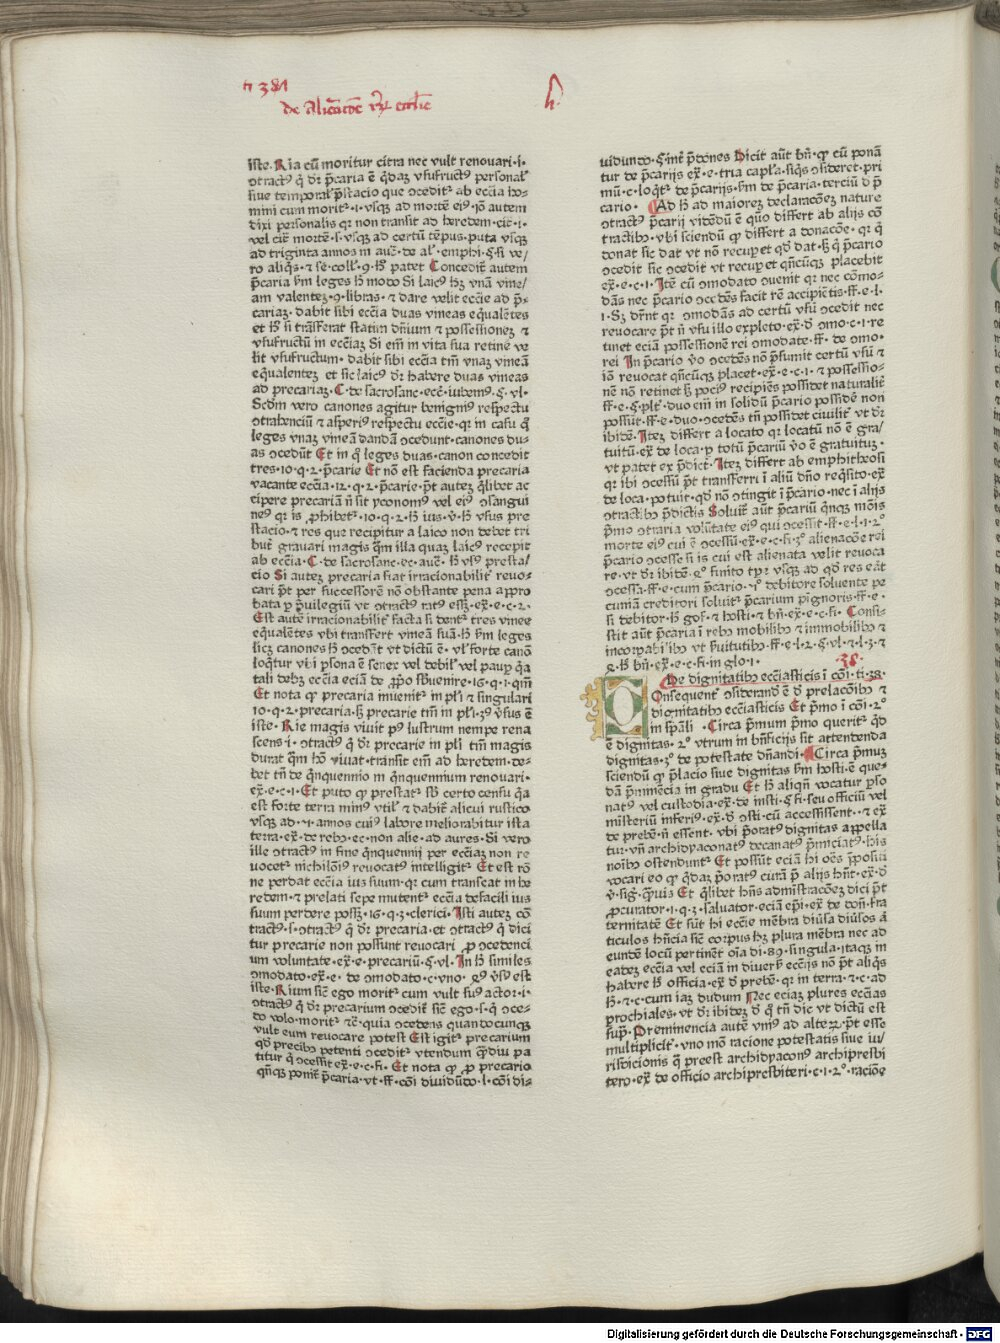 de Alienatione
iste. Ria cū moritur citra nec vult renouari·i·
ꝯtractꝰ q̄ dr̄ p̄caria ē q̄daꝫ vsufructꝰ personal'
siue temporal' p̄statio que ꝯcedit᷑ ab ecc̄ia ho-
mini cum morit᷑·i·vsqꝫ ad mortē eiꝰ·iō autem
dixi personalis qꝛ non transit ad heredem·
vel citᷓ mortē·s·vsqꝫ ad certū tēpus·puta vsqꝫ
ad triginta annos
ro aliqꝰs· patet Concedit᷑ autem
p̄caria ẜm leges h̓ modo Si laicꝰ hꝫ vnā vine/
am valenteꝫ·ꝯ·libras·⁊ dare velit ecc̄ie ad p̄-
cariaꝫ·dabit sibi ecc̄ia duas vineas eq̄ualētes
et h̓ si trāsferat statim dn̄ium ⁊ possessioneꝫ ⁊
vsufructū in ecc̄iaꝫ Si em̄ in vita sua retinē ve
lit vsufructum·dabit sibi ecc̄ia tm̄ vnaꝫ vineā
eq̄ualenteꝫ et sic laicꝰ dr̄ habere duas vineas
ad precariaꝫ·C·de sacrosanc·ecc̄·iubemꝰ·§·vl·
Scd̄m vero canones agitur benigniꝰ respectu
ꝯtrahenciū ⁊ asperiꝰ respectu ecc̄ie·qꝛ in casu q̄
leges vnaꝫ vineā dandā ꝯcedunt·canones du-
as ꝯcedūt Et in q̄ leges duas·canon concedit
tres·10·q·2·p̄carie Et nō est facienda precaria
vacante ecc̄ia·12·q·2·p̄carie·p̄t auteꝫ q̄libet ac
cipere precariā n̄ sit yconomꝰ vel eiꝰ ꝯsangui
neꝰ qꝛ is ꝓhibet᷑·10·q·2·h̓ ius·v̓·h̓ vsus pre
stacio·⁊ res que recipitur a laico non debet tri
but̄ grauari magis q̄m illa quaꝫ laicꝰ recepit
ab ecc̄ia·C·de sacrosanc·ec·auē·h̓ vsꝰ presta/
cio Si auteꝫ precaria fiat irracionabilit᷑ reuo-
cari p̄t per successorē nō obstante pena appro
bata ꝑ p̄uilegiū vt ꝯtractꝰ ratꝰ esseꝫ·ex̄·e·c·2·
Est autē irracionabilit᷑ facta si dent᷑ tres vinee
eq̄ualētes vbi transfert vineā suā·h̓ ẜm leges
licꝫ canones h̓ ꝯcedāt vt dictū ē·vl' forte canō
loq̄tur vbi ꝑsona ē senex vel debil' vel pauꝑ q̄a
tali debꝫ ecc̄ia eciā de ꝓp̓o sb̄uenire·16·q·1·qm̄
Et nota qꝫ precaria inuenit᷑ in pl'i ⁊ singulari
10·q·2·precaria·sꝫ precarie tm̄ in pl'i·3ꝰ v̓sus ē
iste· Rie magis viuit pꝰ lustrum nempe rena
scens·i·ꝯtractꝰ q̄ dr̄ precarie in pl'i tm̄ magis
durat qm̄ hō viuat·transit em̄ ad heredem·de-
bet tn̄ de q̄nquennio in q̄nquennium renouari·
ex̄·e·c·1·Et puto qꝫ prestat᷑ sb̄ certo censu q̄a
est forte terra minꝰ vtil' ⁊ dabit᷑ alicui rustico
vsqꝫ ad·vi·annos cuiꝰ labore meliorabitur ista
terra·ex̄·de rebꝫ·ec·non alie·ad aures·Si vero
ille ꝯtractꝰ in fine q̄nquennij per ecc̄iaꝫ non re
uocet᷑ nichilōiꝰ reuocatꝰ intelligit᷑ Et est rō
ne perdat ecc̄ia ius suum·qꝛ cum transeat in he
redem·⁊ prelati sepe mutent᷑ ecc̄ia defacili ius
suum perdere posseꝫ·16·q·3·clerici·Isti auteꝫ cō
tractꝰ·s·ꝯtractꝰ q̄ dr̄ precaria·et ꝯtractꝰ q̄ dici
tur precarie non possunt reuocari ꝓ ꝯcedenci
um voluntate·ex̄·e·precariū·§·vl·In h̓ similes
ꝯmodato·ex̄·e·de ꝯmodato·c·vno· v̓sꝰ est
iste·Rium sicē ego morit᷑ cum vult suꝰ actor·i·
ꝯtractꝰ q̄ dr̄ precarium ꝯcedit᷑ sicē ego·s·q̄ ꝯce-
do volo·morit᷑ ⁊c̄·quia ꝯcedens quandocunqꝫ
vult eum reuocare potest Est igit᷑ precarium
qd̄ precibꝫ petenti ꝯcedit᷑ vtendum q̄mdiu pa
titur q̄ ꝯcessit ex̄·e·c·fi·Et nota qꝫ ꝓ precario
qn̄qꝫ ponit᷑ p̄caria·vt·ff·cōi diuidūdo·l·cōi di-
uidundo·§·int᷑ p̄dones Dicit aūt bn̄·qꝫ cū ponā
tur de p̄carijs ex̄·e·tria capl'a·siqꝰs ꝯsideret·pri
mū·c·loq̄t᷑ de p̄carijs·ẜm de p̄caria·terciū d̓ p̄
cario· Ad h̓ ad maioreꝫ declaracōeꝫ nature
ꝯtractꝰ p̄carij vidēdū ē quō differt ab alijs cō
tractibꝫ·vbi sciendū qꝫ differt a donacōe·qꝛ q̄
donat sic dat vt nō recuꝑet qd̄ dat·sꝫ q̄ p̄cario
ꝯcedit sic ꝯcedit vt recuꝑet qn̄cūqꝫ placebit
ex̄·e·c·1·Itē cū ꝯmodato ꝯuenit qꝛ nec cōmo-
dās nec p̄cario ꝯcedēs facit rē accipiētis·ff·e·l·
1·Sꝫ drn̄t qꝛ ꝯmodās ad certū vsū ꝯcedit nec
reuocare p̄t n̄ vsu illo expleto·ex̄·d̓ ꝯmo·c·1·re
tinet eciā possessionē rei ꝯmodate·ff·de ꝯmo·
rei In p̄cario v̓o ꝯcedēs nō p̄sumit certū vsū ⁊
iō reuocat qn̄cūqꝫ placet·ex̄·e·c·1·⁊ possessio-
nē nō retinet sꝫ pociꝰ recipiēs possidet naturalit᷑
ff·e·§·plt̓·duo em̄ in solidū p̄cario possidē non
possūt·ff·e·duo·ꝯcedēs tn̄ possidet ciuilit᷑ vt dr̄
ibidē·Iteꝫ differt a locato qꝛ locatū nō ē gra/
tuitū·ex̄ de loca·ꝑ totū p̄cariū v̓o ē gratuituꝫ·
vt patet ex p̄dict̓·Iteꝫ differt ab emphitheosi
qꝛ ibi ꝯcessū p̄t transferri ī aliū dn̄o req̄sito·ex̄
de loca·potuit·qd̄ nō ꝯtingit ī p̄cario·nec ī alijs
ꝯtractibꝫ p̄dictis Soluit᷑ aūt p̄cariū q̄nqꝫ mōis
p̄mo ꝯtraria volūtate eiꝰ qui ꝯcessit·ff·e·l·1·2º
morte eiꝰ cui ē ꝯcessū·ex̄·e·c·fi·3º alienacōe rei
p̄cario ꝯcesse si is cui est alienata velit reuoca
re·vt dr̄ ibidē·4º finito tꝑe vsqꝫ ad qd̄ res eāt
ꝯcessa·ff·e·cum p̄cario·vº debitore soluente pe
cuniā creditori soluit᷑ p̄carium pignoris·ff·e·
si debitor·h̓ gof·⁊ hosti·⁊ bn̄·ex̄·e·c·fi· Consi-
stit aūt p̄caria ī rebꝫ mobilibꝫ ⁊ immobilibꝫ ⁊
incorꝑalibꝫ vt ẜuitutibꝫ·ff·e·l·2·§·vl·⁊·l·3·⁊
4·h̓ bn̄·ex̄·e·c·fi·in glo·1·
38
De dignitatibꝫ ecc̄iasticis ī cōi·ti·38·
COnsequent᷑ ꝯsiderandū ē d̓ prelacōibꝫ ⁊
dignitatibꝫ ecc̄iasticis Et p̄mo ī cōi·2º
in sp̄ali ·Circa p̄mum p̄mo querit᷑ qd̄
ē dignitas·2º vtrum in bn̄ficijs sit attendenda
dignitas·3º de potestate dn̄andi· Circa p̄muꝫ
sciendū qꝫ p̄lacio siue dignitas ẜm hosti·ē que-
dā p̄minēcia in gradu Et h̓ aliqn̄ vocatur ꝑso
natꝰ vel custodia·ex̄·de insti·§·fi·seu officiū vel
misteriū inferiꝰ·ex̄·d̓ ꝯsti·cū accessissent··⁊ ex̄
de prebē·n̄ essent·vbi p̄oratꝰ dignitas appella
tur·vn̄ archidyaconatꝰ decanatꝰ p̄miciatꝰ·his
noībꝫ ostendunt᷑ Et possūt eciā hi oēs p̄positi
vocari eo qꝫ q̄daꝫ p̄oratꝰ curā p̄ alijs hn̄t·ex̄·d̓
v̓·sig·q̄muis Et q̄libet hn̄s admīstracōeꝫ dici p̄t
ꝓcurator·1·q·3·saluator·eciā ep̄i·ex̄ de don̄·fra
ternitatē Et sūt hi ecc̄ie mēbra diu̓sa diu̓sos ar
ticulos hn̄cia·sic̄ corpus hꝫ plura mēbra nec ad
eundē locū pertinēt oīa di·89·singula·itaqꝫ in
eadeꝫ ecc̄ia vel eciā in diuers̓ ecc̄ijs nō p̄t aliqꝰs
habere h̓ officia·ex̄·d̓ prebē·qꝛ in terra·⁊·c·ad
h̓·⁊·c·cum iaꝫ dudum Nec eciaꝫ plures ecc̄ias
prochiales·vt dr̄ ibideꝫ d̓ q̄ tn̄ dic vt dictū est
suꝑ·Preminencia autē vniꝰ ad alteꝝ·p̄t esse
multiplicit᷑·vno mō racione potestatis siue iu/
risdicionis q̄ preest archidyaconꝰ archipresbi
tero·ex̄ de officio archipresbiteri·c·1·2º·racione